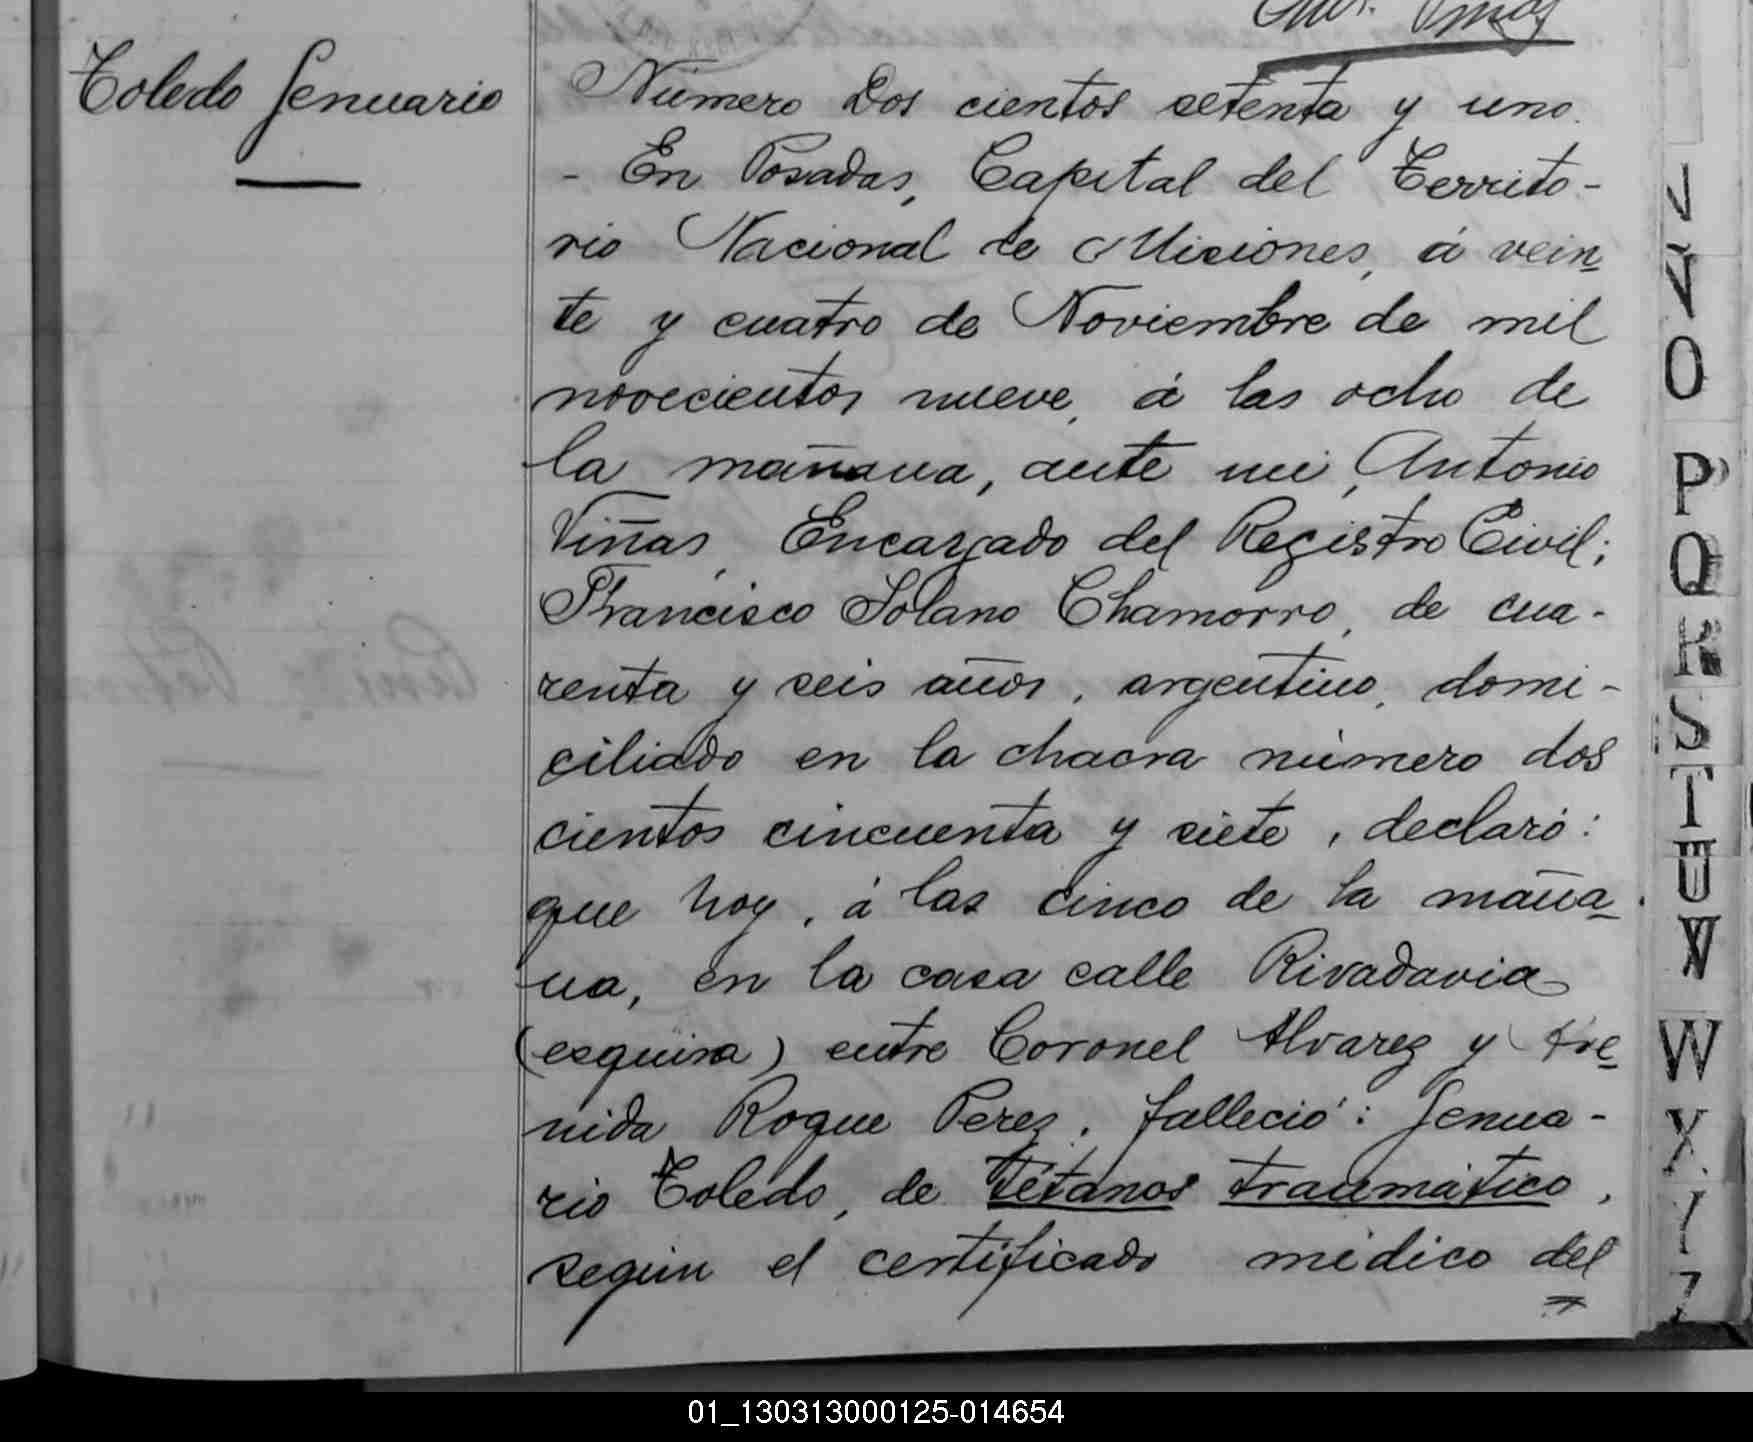 Toledo Jenuario
Número Dos cientos setenta y uno.
- En Posadas, Capital del Territo-
rio Nacional de Misiones, á vein
te y cuatro de Noviembre de mil
novecientos nueve, á las ocho de
la mañana, ante mi, Antonio
Viñas, Encargado del Registro Civil;
Francisco Solano Chamorro, de cua-
renta y seis años, argentino, domi-
ciliado en la chacra número dos
cientos cincuenta y siete, declaró:
que hoy, á las cinco de la maña
na, en la casa calle Rivadavia
(esquina) entre Coronel Alvarez y Ave
nida Roque Perez, falleció: Jenua-
rio Toledo, de Tétanos traumático,
según el certificado médico del
V
O
P
Q
R
S
T
U
V
W
X
Y
Z
01_130313000125-014654